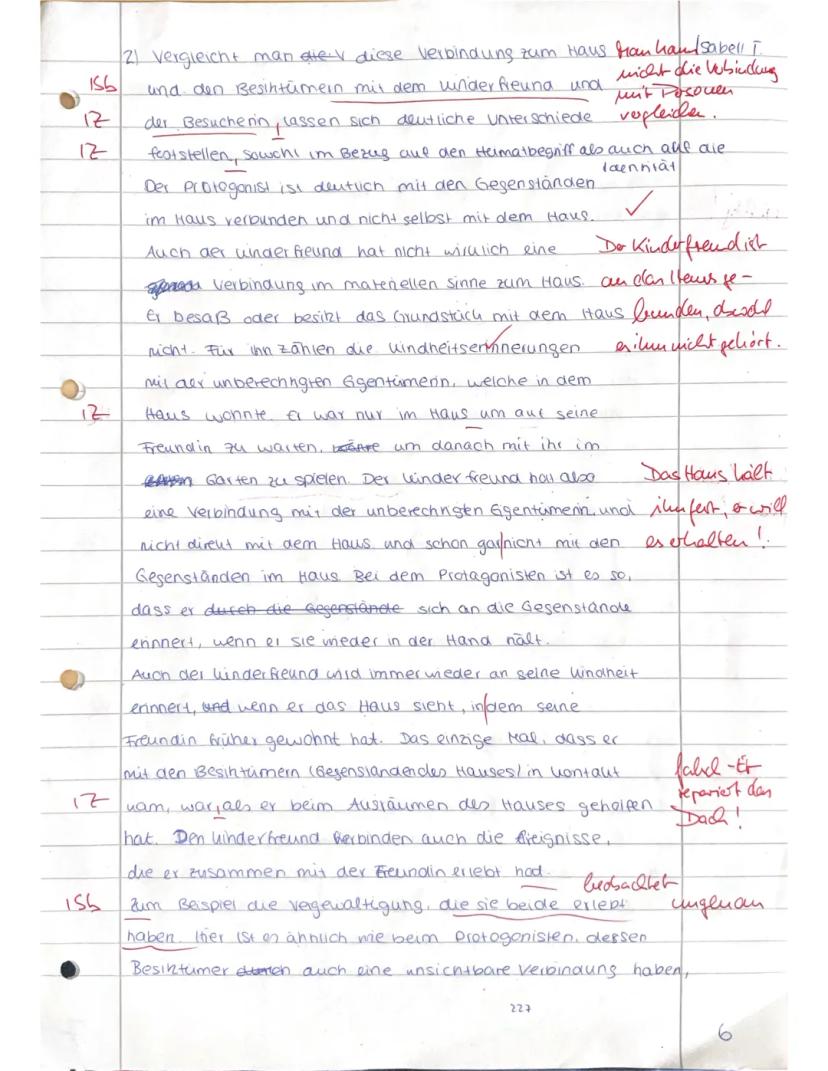 2) Vergleicht man die V diese Verbindung zum Haus man kann Isabell I.
1Sb und den Besiktümern mit dem Kinderfreund und nicht die Verbindung mit Personen
1Z der Besucherin, lassen sich deutliche Unterschiede vergleichen.
1Z feststellen, sowohl im Bezug auf den Heimatbegriff als auch auf die Idennität
Der Protogonist ist deutlich mit den Gegenständen
im Haus verbunden und nicht selbst mit dem Haus. ✓
Auch der Kinderfreund hat nicht wirklich eine Der Kinderfreund ist
Verbindung im materiellen Sinne zum Haus. an das Haus ge-
Er besaß oder besitzt das Grundstück mit dem Haus bunden, obwohl
nicht. Für ihn zählen die Kindheitserinnerungen es ihm nicht gehört.
mit der unberechtigten Eigentümerin, welche in dem
1Z Haus wohnte. Er war nur im Haus um auf seine
Freundin zu warten, um danach mit ihr im
Garten zu spielen. Der Kinderfreund hat also Das Haus hält
eine Verbindung mit der unberechtigten Eigentümerin und ihn fest, er will
nicht direkt mit dem Haus und schon gar|nicht mit den es erhalten!
Gegenständen im Haus. Bei dem Protagonisten ist es so,
dass er durch die Gegenstände sich an die Gegenstände
erinnert, wenn er sie wieder in der Hand hält.
Auch der Kinderfreund wird immer wieder an seine Kindheit
erinnert, und wenn er das Haus sieht, in|dem seine
Freundin früher gewohnt hat. Das einzige Mal, dass er
mit den Besiktümern (Gegenständen des Hauses) in Kontakt falsch - Er
1Z kam, war, als er beim Ausräumen des Hauses geholfen repariert das
hat. Den Kinderfreund verbinden auch die Ereignisse, Dach!
die er zusammen mit der Freundin erlebt had.
1Sb Zum Beispiel die Vergewaltigung, die sie beide erlebt beobachtet ungenau
haben. Hier ist es ähnlich wie beim Protogonisten, dessen
Besiktümer durch auch eine unsichtbare Verbindung haben,
227
6